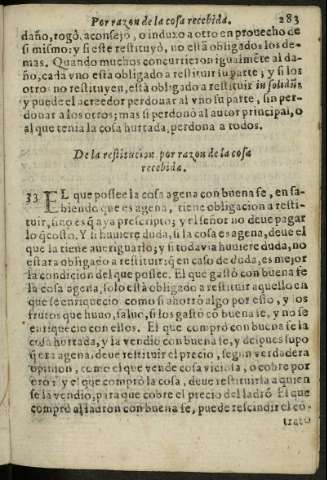 Por razon de la cosa recebida. 283
daño, rogò, aconsejó, o induxo a otro en prouecho de
si mismo: y si este restituyò, no està obligados los de-
mas. Quando muchos concurrieron igualmẽte al da-
ño, cada vno està obligado a restituir su parte; y si los
otros no restituyen, està obligado a restituir in solidũ:
y puede el acreedor perdonar al vno su parte, sin per-
donar a los otros; mas si perdonò al autor principal, o
al que tenia la cosa hurtada, perdona a todos.
De la restitucion por razon de la cosa
recebida.
33 EL que possee la cosa agena con buena fe, en sa-
biendo que es agena, tiene obligacion a resti-
tuir, sino es q̃ aya prescripto; y el señor no deue pagar
lo q̃ costò. Y si huuiere duda, si la cosa es agena, deue el
que la tiene aueriguarlo; y si todavia huuiere duda, no
estara obligado a restituir: q̃ en caso de duda, es mejor
la condicion del que possee. El que gastò con buena fe
la cosa agena, solo està obligado a restituir aquello en
que se enriquecio como si ahorrò algo por esto, y los
frutos que huuo, saluo, si los gastò cõ buena fe, y no se
enriquecio con ellos. El que comprò con buena fe la
cosa hurtada, y la vendio con buena fe, y despues supo
q̃ era agena, deue restituir el precio, segun verdadera
opinion, como el que vende cosa viciosa, o cobre por
oro: y el que comprò la cosa, deue restituirla a quien
se la vendio, para que cobre el precio del ladrõ. El que
comprò al ladron con buena fe, puede rescindir el cõ-
trato